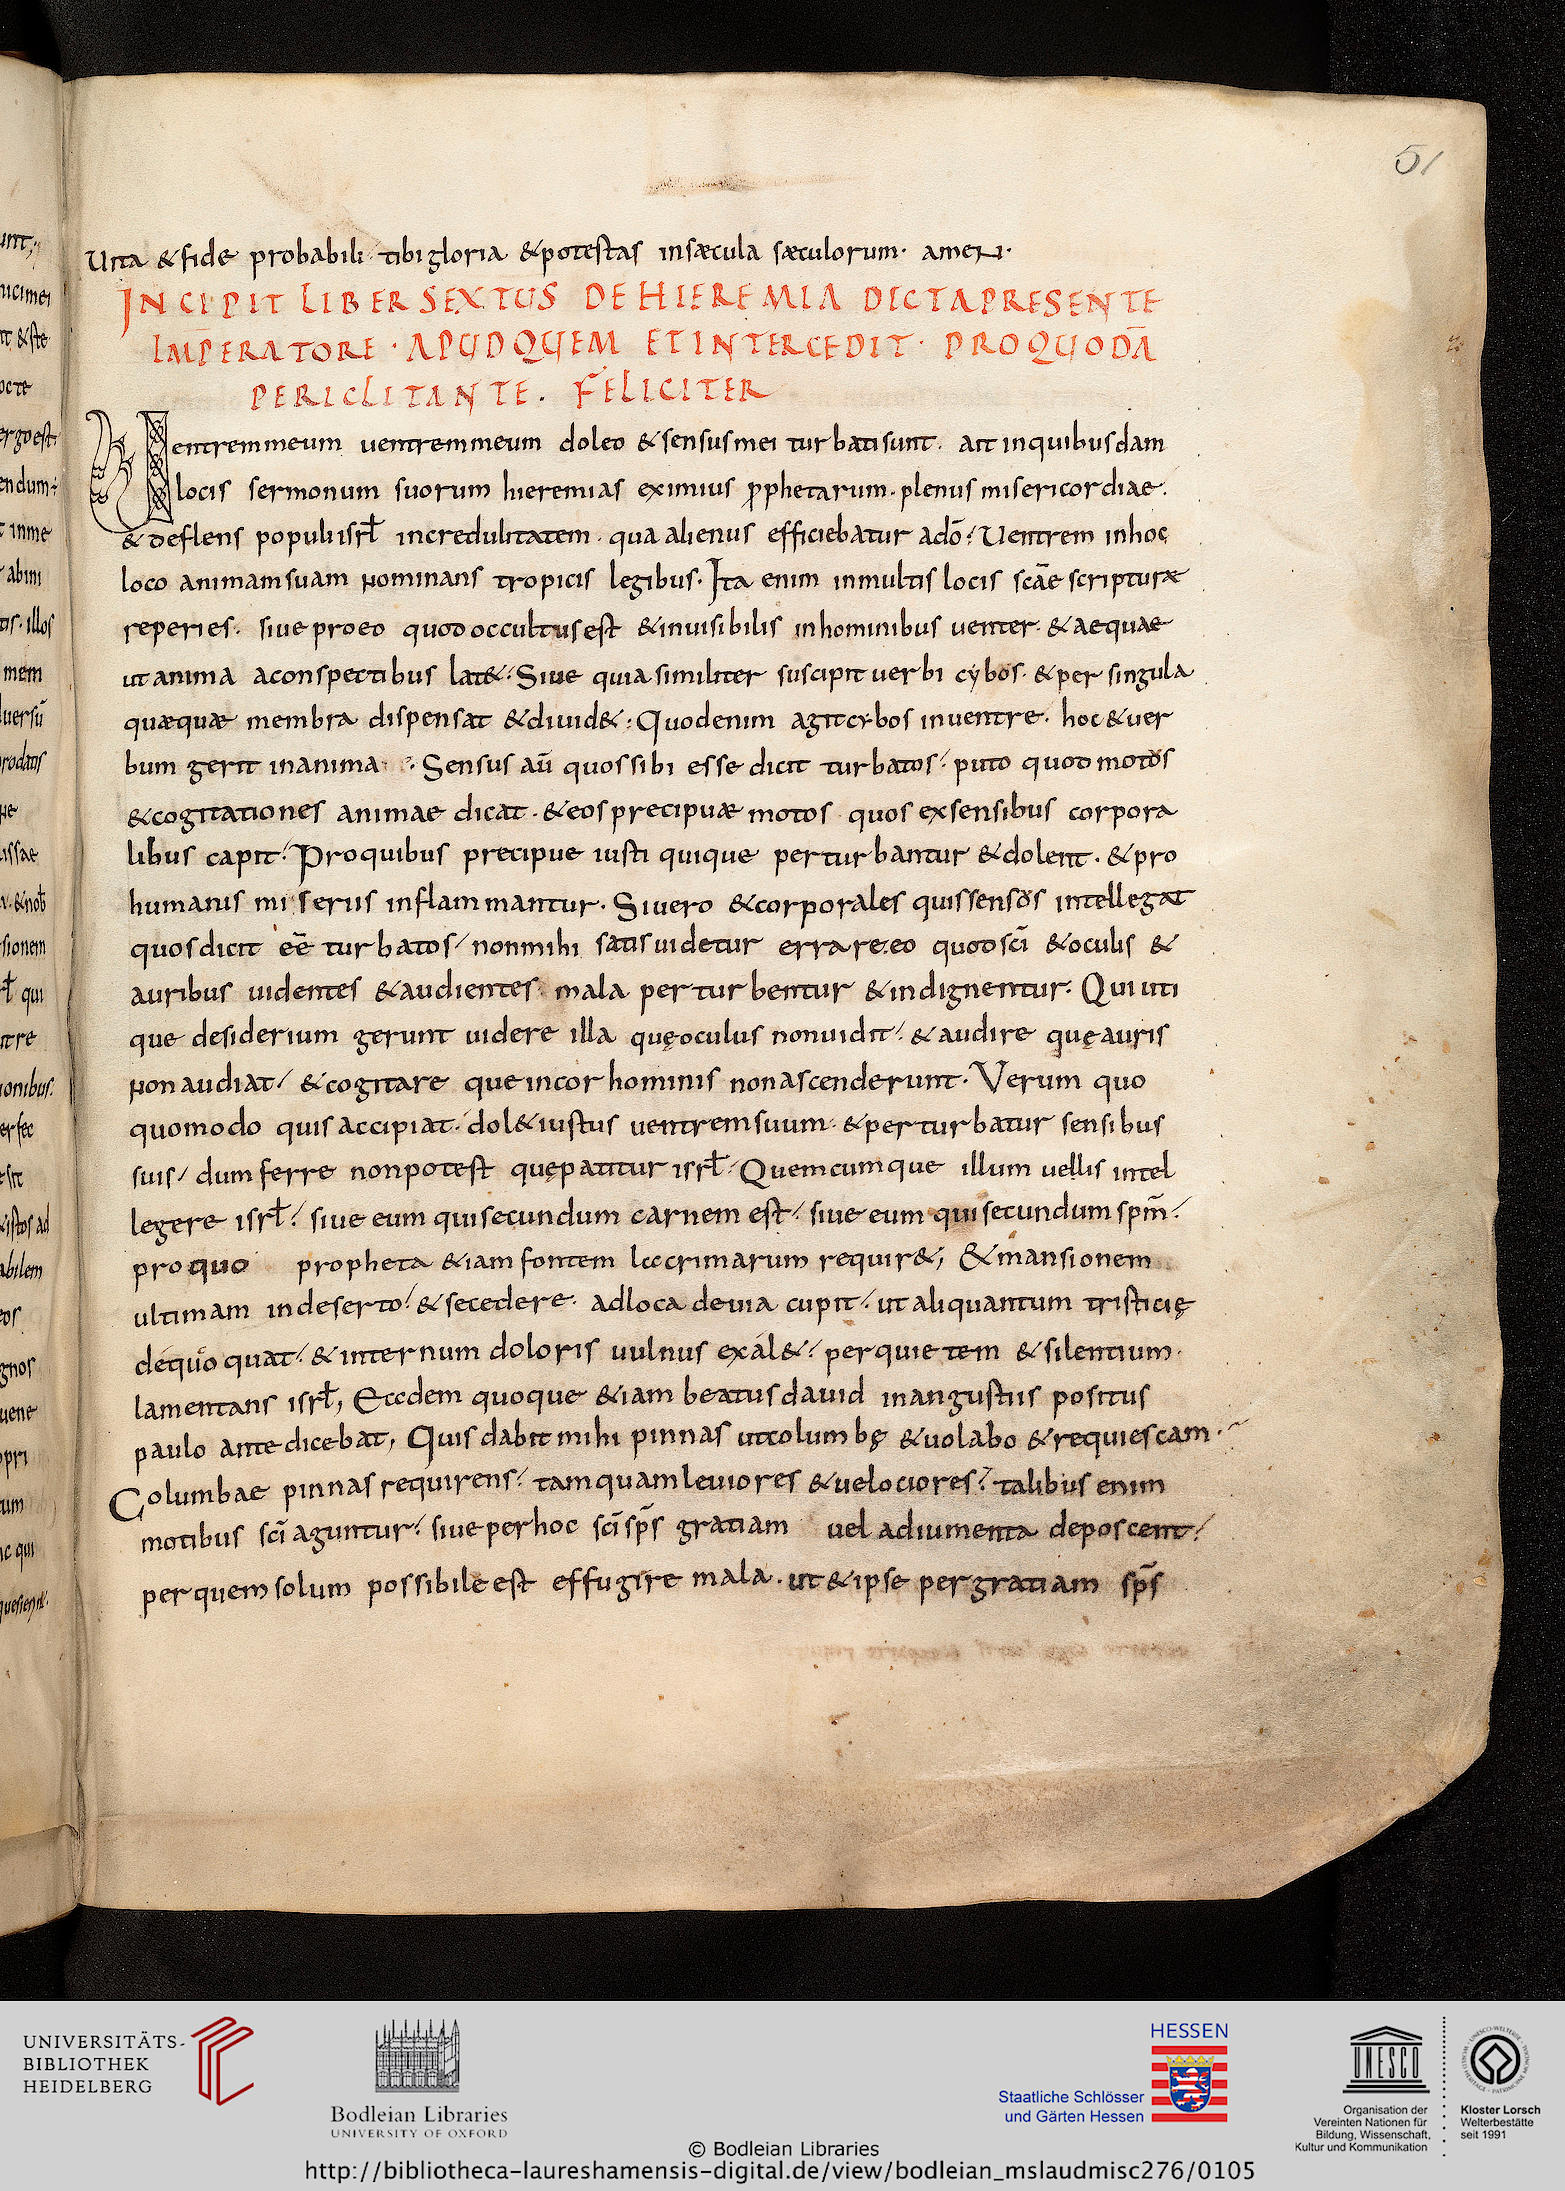 51
uita & fide probabili tibi gloria & potestas in sæcula sæculorum · amen ·
INCIPIT LIBER SEXTUS DE HIEREMIA DICTA PRESENTE
IMPERATORE · APUD QUEM ET INTERCEDIT · PRO QUODĀ
PERICLITANTE . FELICITER
Uentrem meum uentrem meum doleo & sensus mei turbati sunt · ait in quibusdam
locis sermonum suorum hieremias eximius pphetarum · plenus misericordiae .
& deflens populi isrł incredulitatem · qua alienus efficiebatur a dō ! Uentrem in hoc
loco animam suam nominans tropicis legibus · Ita enim in multis locis scāe scripturæ
reperies · siue pro eo quod occultus est & inuisibilis in hominibus uenter · & aeque
ut anima a conspectibus lat& · Siue quia similiter suscipit uerbi cybos · & per singula
quæquæ membra dispensat & diuid& : Quod enim agit cybos in uentre · hoc & uer
bum gerit in anima · Sensus aū quos sibi esse dicit turbatos ! puto quod motos
& cogitationes animae dicat · & eos precipuæ motos quos ex sensibus corpora
libus capit ! Pro quibus precipue iusti quique perturbantur & dolent · & pro
humanis miseriis inflammantur · Si uero & corporales quis sensos intellegat
quos dicit eē turbatos / non mihi satis uidetur errare · eo quod scī & oculis &
auribus uidentes & audientes mala perturbentur & indignentur · Qui uti
que desiderium gerunt uidere illa quę oculus non uidit ! & audire quę auris
non audiat / & cogitare que in cor hominis non ascenderunt · Verum quo
quomodo quis accipiat · dol& iustus uentrem suum · & perturbatur sensibus
suis / dum ferre non potest quę patitur isrł · Quemcumque illum uellis intel
legere isrł ! siue eum qui secundum carnem est ! siue eum qui secundum spm̄ !
pro quo propheta &iam fontem laccrimarum requir& , & mansionem
ultimam in deserto ! & secedere · ad loca deuia cupit ! ut aliquantum tristicię
dequoquat ! & internum doloris uulnus exal& ! per quietem & silentium ·
lamentans isrł , Eccdem quoque &iam beatus dauid in angustiis positus
paulo ante dicebat , Quis dabit mihi pinnas ut columbę & uolabo & requiescam ·
Columbae pinnas requirens ! tamquam leuiores & uelociores ! talibus enim
motibus scī aguntur ! siue per hoc scī sps̄ gratiam uel adiumenta deposcent !
per quem solum possibile est effugire mala · ut & ipse per gratiam sps̄
UNIVERSITÄTS-
BIBLIOTHEK
HEIDELBERG
Bodleian Libraries
UNIVERSITY OF OXFORD
HESSEN
Staatliche Schlösser
und Gärten Hessen
UNESCO
Organisation der
Vereinten Nationen für
Bildung, Wissenschaft,
Kultur und Kommunikation
Kloster Lorsch
Welterbestätte
seit 1991
© Bodleian Libraries
http://bibliotheca-laureshamensis-digital.de/view/bodleian_mslaudmisc276/0105